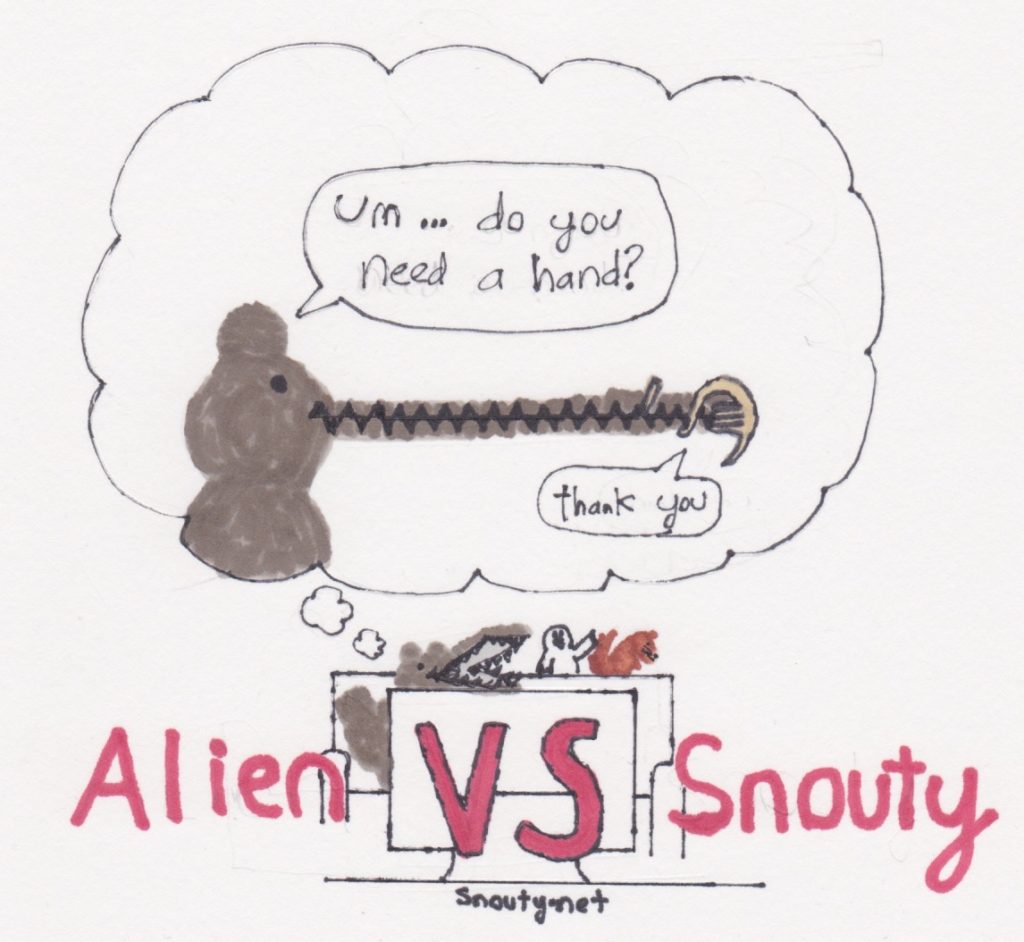 Um... do you
need a hand?
thank you
Alien VS Snouty
Snouty.net